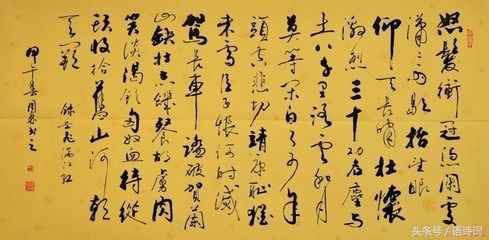 怒髮衝冠憑闌處
瀟瀟雨歇抬望眼
仰天長嘯壯懷
激烈三十功名塵與
土八千里路雲和月
莫等閒白了少年
頭空悲切靖康恥猶
未雪臣子恨何時滅
駕長車踏破賀蘭
山缺壯志飢餐胡虜肉
笑談渴飲匈奴血待從
頭收拾舊山河朝
天闕 岳飛滿江紅
甲午 之
头条号/语诗词